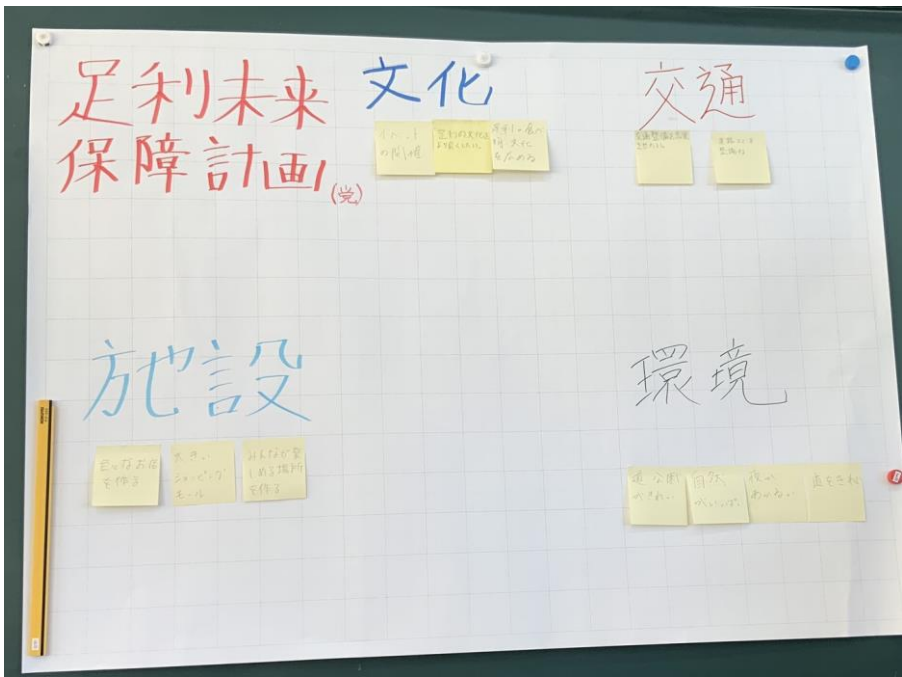 足利未来
保障計画
(党)
文化
イベント
の開催
足利の文化を
足利の食べ
物 文化
を広める
交通
交通整備を充実
させたい
道路とかを
整備する
施設
色々なお店
を作る
大きい
ショッピング
モール
みんなが楽
しめる場所
を作る
環境
道 公園
がきれい
自然
がいっぱい
夜が
あかるい
道をきれ